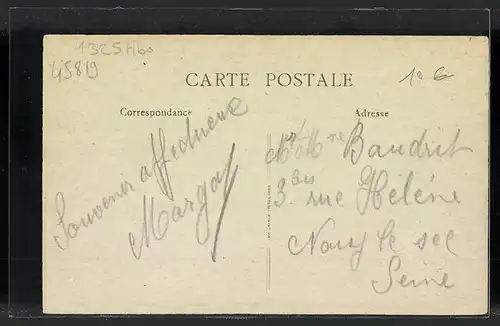 45819
CARTE POSTALE
10 €
Correspondance
Adresse
Souvenir affectueux
Margot
Mr & Mme Baudrit
3 bis rue Hélène
Noisy le sec
Seine